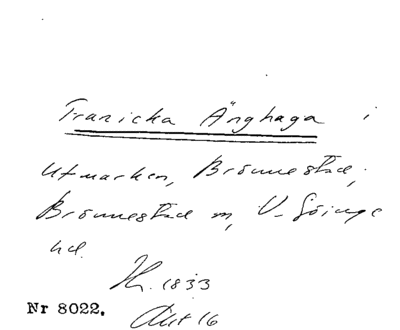 Tranicka Änghaga i
Utmarken, Brönnestad,
Brönnestad sn, V. Göinge
hd.
1833
Nr 8022. Akt 16